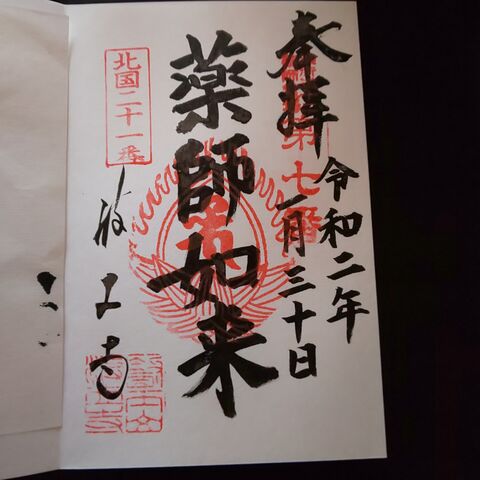 奉拝
第七番
令和二年
一月三十日
薬師如来
北国二十一番